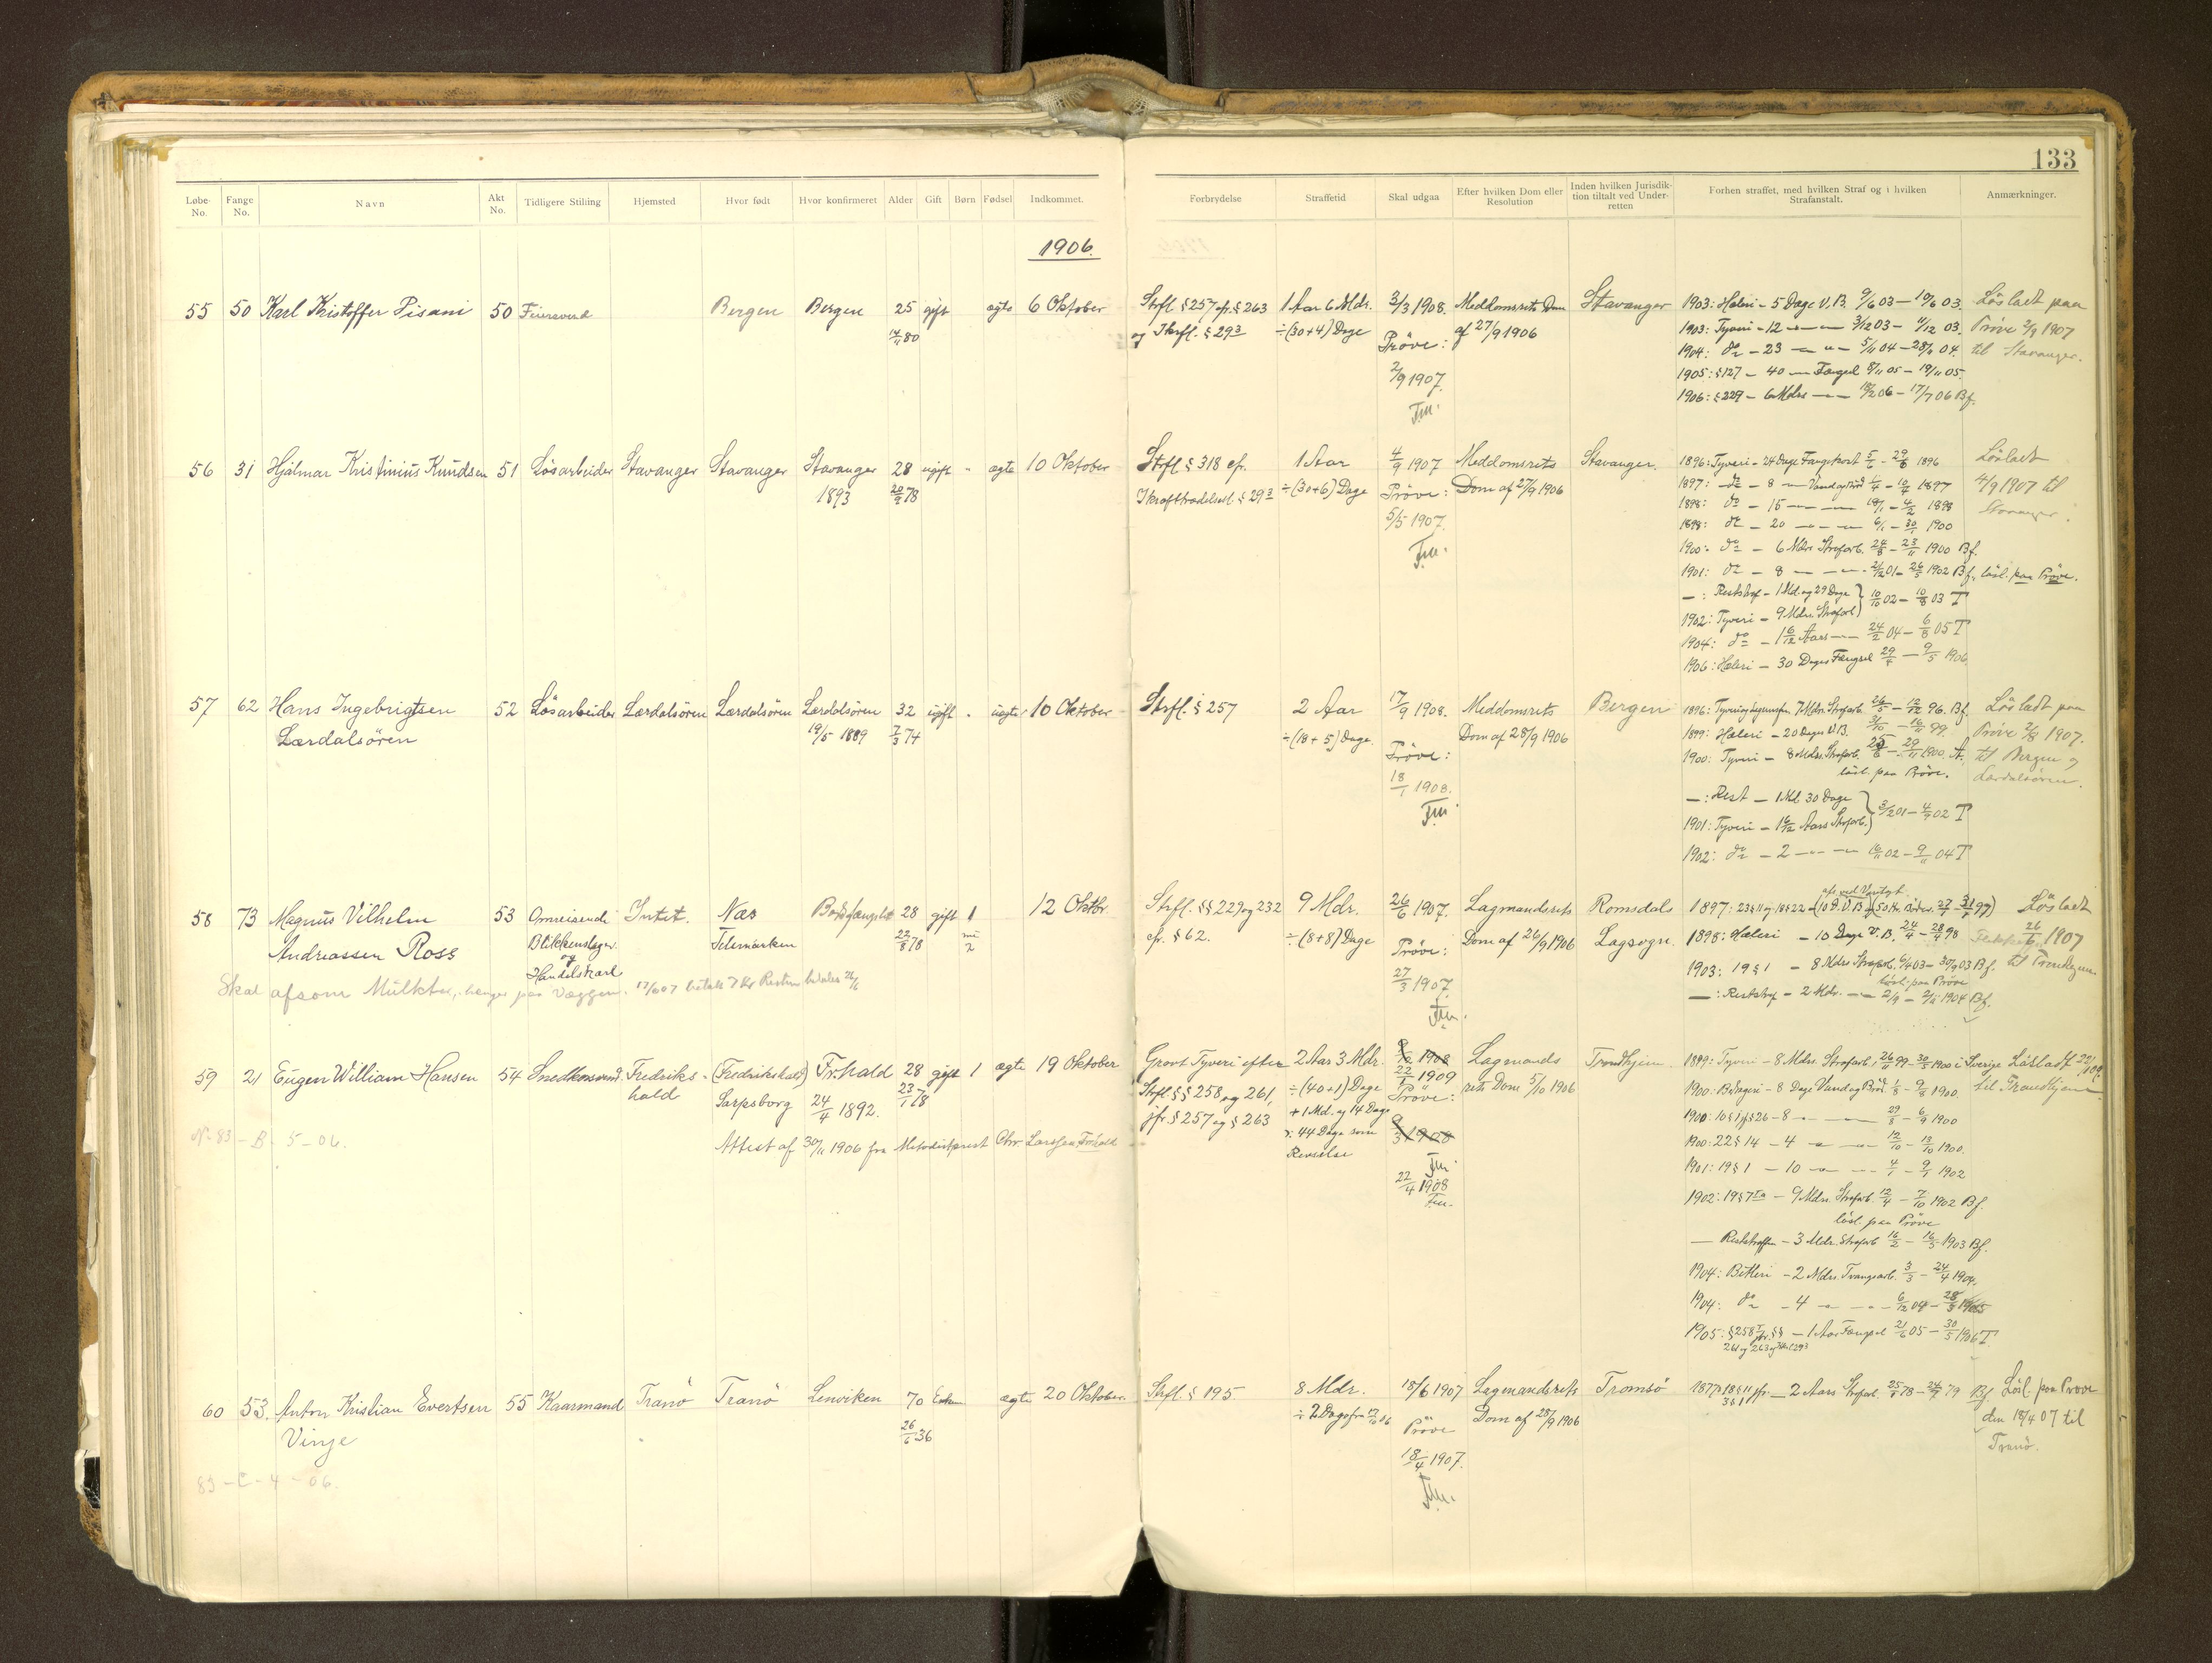 133
Løbe-No. Fange No. Navn Akt No. Tidligere Stilling Hjemsted Hvor født Hvor konfirmeret Alder Gift Børn Fødsel Indkommet. Forbrydelse Straffetid Skal udgaa Efter hvilken Dom eller Resolution Inden hvilken Jurisdiktion tiltalt ved Underretten Forhen straffet, med hvilken Straf og i hvilken Strafanstalt. Anmærkninger.
1906.
55 50 Karl Kristoffer Pisani 50 Feiersvend Bergen Bergen 25 gift ægte 6 Oktober
14/11 80
Strfl. § 257 cfr. § 263 1 Aar 6 Mdr. 3/3 1908. Meddomsrets Dom Stavanger
og Ikrfl. § 29 3 ÷ (30+4) Dage Prøve: af 27/9 1906
2/9 1907.
1903: Hæleri - 5 Dage V. B. 9/6 03 - 10/6 03.
1903: Tyveri - 12 - - - 3/12 03 - 11/12 03.
1904: do - 23 - - - 5/11 04 - 28/11 04.
1905: § 127 - 40 - Fængsel 8/11 05 - 19/11 05.
1906: § 229 - 6 Mdrs - - 18/2 06 - 17/7 06 Bf.
Løsladt paa
Prøve 2/9 1907
til Stavanger.
56 31 Hjalmar Kristinius Knudsen 51 Løsarbeider Stavanger Stavanger Stavanger 28 ugift - ægte 10 Oktober
1893 20/9 78
Strfl. § 318 cfr. 1 Aar 4/9 1907 Meddomsrets Stavanger.
Ikrafttrædelsesl. § 29 3 ÷ (30+6) Dage Prøve: Dom af 27/9 1906
5/5 1907.
1896: Tyveri - 24 Dage Fangekost 5/6 - 29/6 1896
1897: do - 8 - Vand og Brød - 1897
1898: do - 15 - - - 18/1 - 4/2 1898
1899: do - 20 - - - 6/1 - 30/1 1900
1900: do - 6 Mdr. Strafarb. 24/5 - 23/11 1900 Bf.
1901: do - 8 - - - 21/12 01 - 26/5 1902 Bf, løsl. paa Prøve.
- : Reststraf - 1 Md. og 29 Dage
1902: Tyveri - 9 Mdrs. Strafarb. 10/10 02 - 10/8 03 T
1904: do - 1 6/12 Aars - - 24/2 04 - 6/8 05 T
1906: Hæleri - 30 Dages Fængsel 29/4 - 9/5 1906
Løsladt
4/9 1907 til
Stavanger.
57 62 Hans Ingebrigtsen 52 Løsarbeider Lærdalsøren Lærdalsøren Lærdalsøren 32 ugift - uægte 10 Oktober
Lærdalsøren 19/5 1889 7/3 74
Strfl. § 257 2 Aar 17/9 1908. Meddomsrets Bergen
÷ (18 + 5) Dage. Prøve: Dom af 28/9 1906
18/1 1908.
1896: 7 Mdr. Strafarb. 26/5 - 12/12 96. Bf.
1899: Hæleri - 20 Dages V. B. 31/10 - 16/11 99.
1900: Tyveri - 8 Mdrs. Strafarb. 29/11 1900. A.
løsl. paa Prøve.
- : Rest - 1 Md 30 Dage
1901: Tyveri - 1 6/12 Aars Strafarb. 3/2 01 - 4/9 02 T
1902: do - 2 - - - 16/11 02 - 9/11 04 T
Løsladt paa
Prøve 2/8 1907.
til Bergen og
Lærdalsøren.
58 73 Magnus Vilhelm 53 Omreisende Intet. Næs Bodsfængslet 28 gift 1 12 Oktbr.
Andreassen Ross Blikkenslager Telemarken 22/8 78 nu 2
og
Handelskarl
Skal afsone Mulkter, henger paa Væggen. 17/6 07 betalt 7 Kr Resten betales 26/6
Strfl. §§ 229 og 232 9 Mdr. 26/6 1907. Lagmandsrets Romsdals
cfr. § 62. ÷ (8+8) Dage Prøve: Dom af 26/9 1906 Lagsogn.
27/3 1907.
1898: Hæleri - 10 Dage V. B. 24/4 - 28/4 98
1903: 19 § 1 - 8 Mdrs Strafarb. 6/4 03 - 30/9 03 Bf.
løsl. paa Prøve
- : Reststraf - 2 Mdr. - - 2/9 - 2/11 1904 Bf.
Løsladt
26/6 1907
til Trondhjem
59 21 Eugen William Hansen 54 Snedkersvend Fredriks- (Fredrikshald) Fr.hald 28 gift 1 ægte 19 Oktober
hald Sarpsborg 24/4 1892. 23/1 78
No 83 - B. 5 - 06. Attest af 30/11 1906 fra Metodistprest Chr. Larssen Fr.hald
Grovt Tyveri efter 2 Aar 3 Mdr. 1908 Lagmands Trondhjem
Strfl. §§ 258 og 261, ÷ (40+1) Dage 22/1 1909 rets Dom 5/10 1906
jfr. § 257 og § 263 + 1 Md. og 14 Dage Prøve:
: 44 Dage som 9/3 1908
Revselse
22/4 1908
1899: Tyveri - 8 Mdrs. Strafarb. 26/11 99 - 30/5 1900 i Sverige
1900: Betlageri - 8 Dage Vand og Brød. 1/8 - 9/8 1900.
1900: 10 § 1 jf § 26 - 8 - - - 29/8 - 6/9 1900
1900: 22 § 14 - 4 - - - 12/10 - 13/10 1900.
1901: 19 § 1 - 10 - - - 4/1 - 9/1 1902
1902: 19 § 7 - 9 Mdrs. Strafarb. 12/4 - 7/10 1902 Bf.
løsl. paa Prøve
- Reststraffen - 3 Mdr. Strafarb 16/2 - 16/5 1903 Bf.
1904: Betleri - 2 Mdrs. Tvangsarb. 3/3 - 24/4 1904.
1904: do - 4 - - - 6/12 04 - 28/3 1905
1905: § 258 jfr. §§ - 1 Aar Fængsel 21/6 05 - 30/5 1906 T
261 og 263
Løsladt
til Trondhjem
60 53. Anton Kristian Evertsen 55 Kaarmand Tranø Tranø Lenviken 70 Enkem ægte 20 Oktober.
Vinje 26/6 36
83 - C - 4 - 06.
Strfl. § 195 8 Mdr. 18/6 1907 Lagmandsrets Tromsø
÷ 2 Dage fra 17/10 06 Prøve Dom af 28/9 1906
18/4 1907.
1877: 18 § 11 jfr. - 2 Aars Strafarb. 25/1 78 - 24/9 79 Bf.
Løsl. paa Prøve
den 18/4 07 til
Tranø.